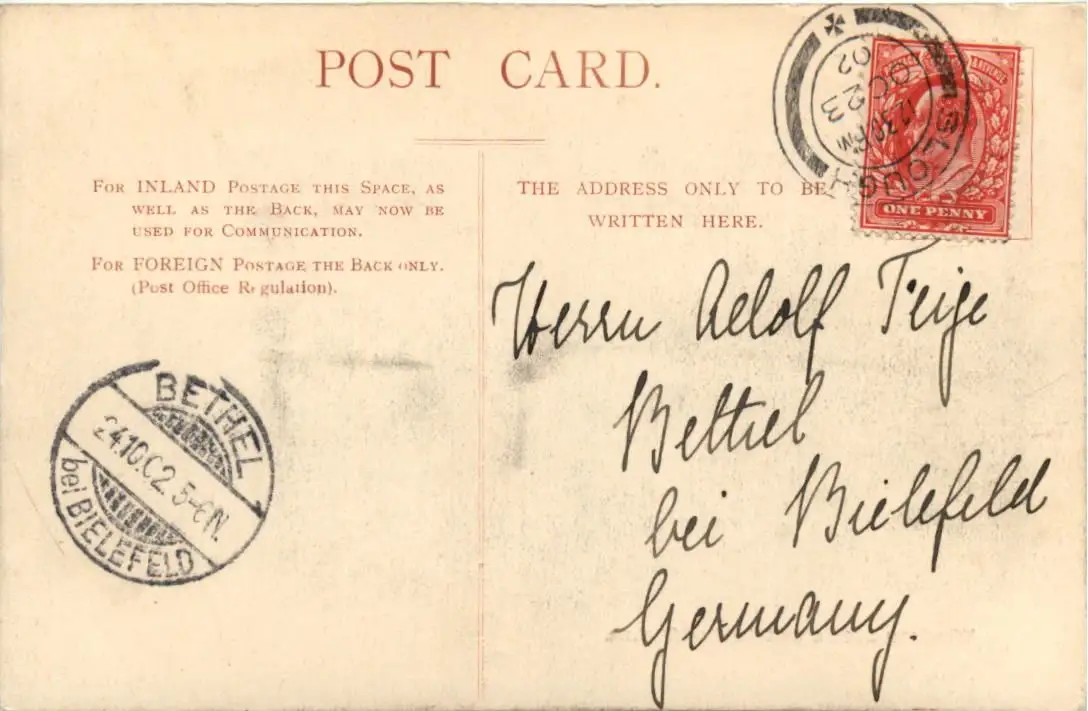 POST CARD.
FOR INLAND POSTAGE THIS SPACE, AS
WELL AS THE BACK, MAY NOW BE
USED FOR COMMUNICATION.
FOR FOREIGN POSTAGE THE BACK ONLY.
(Post Office Regulation).
THE ADDRESS ONLY TO BE
WRITTEN HERE.
SLOUGH
12.30 PM
OC 23
02
ONE PENNY
Herrn Adolf Teije
Bethel
bei Bielefeld
Germany.
BETHEL
24.10.02 5-6N.
bei BIELEFELD